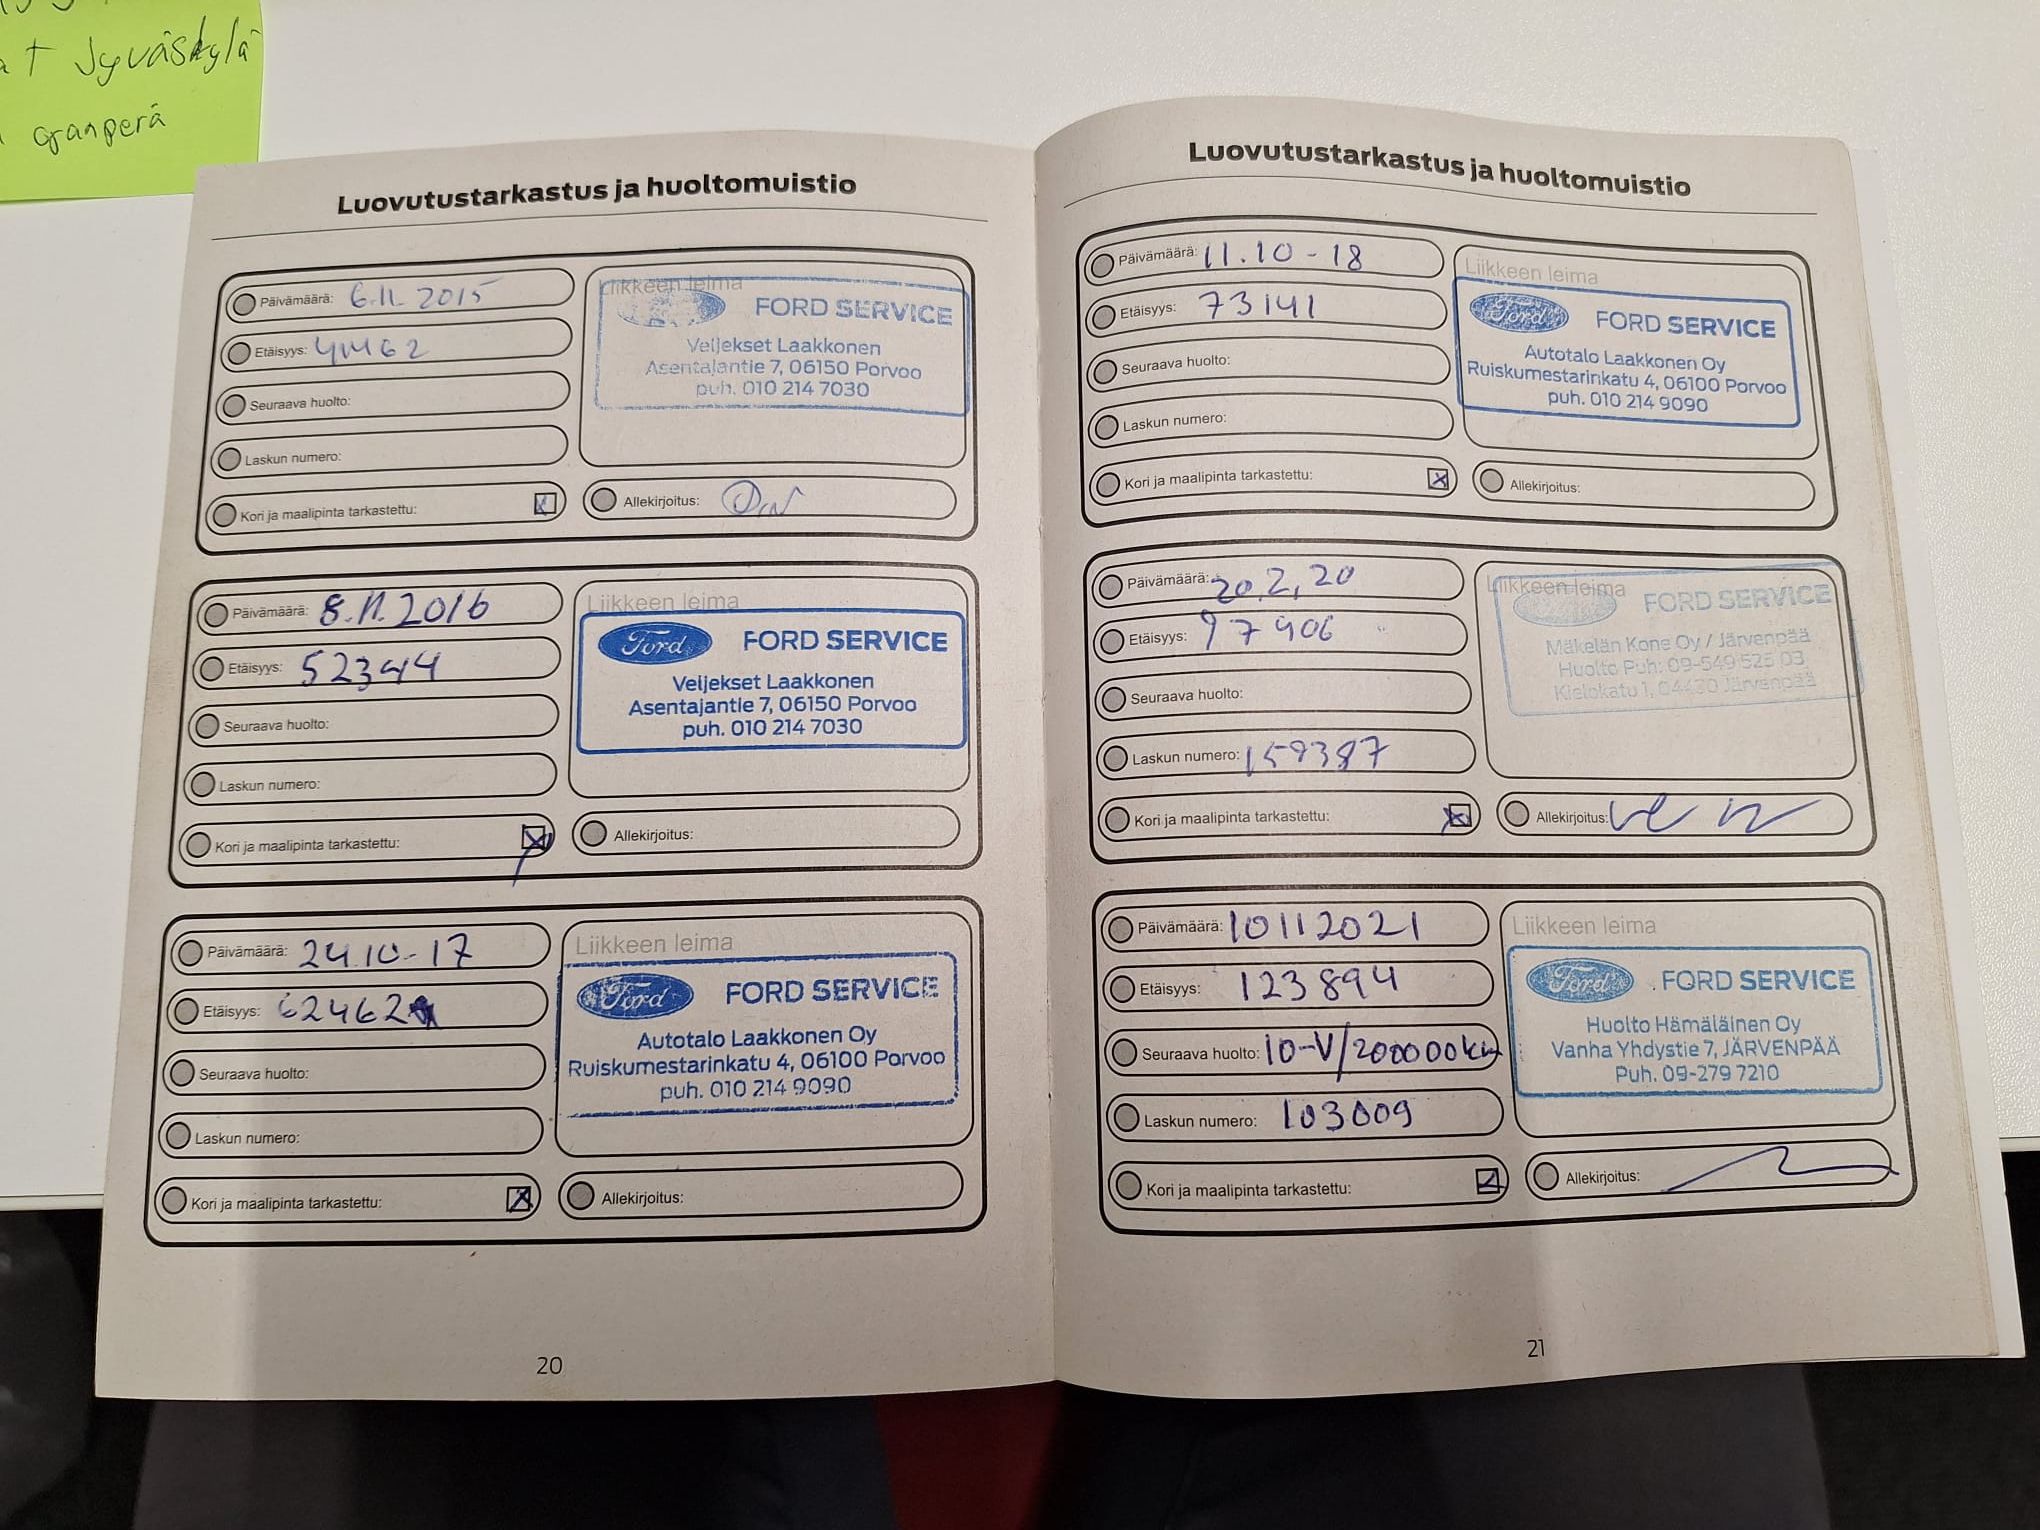 Jyväskylä
Luovutustarkastus ja huoltomuistio
Päivämäärä: 6.11.2015
Etäisyys:
Seuraava huolto:
Laskun numero:
Kori ja maalipinta tarkastettu:
Liikkeen leima
FORD SERVICE
Veljekset Laakkonen
Asentajantie 7, 06150 Porvoo
puh. 010 214 7030
Allekirjoitus:
Päivämäärä: 8.11.2016
Etäisyys: 52344
Seuraava huolto:
Laskun numero:
Kori ja maalipinta tarkastettu:
Liikkeen leima
Ford FORD SERVICE
Veljekset Laakkonen
Asentajantie 7, 06150 Porvoo
puh. 010 214 7030
Allekirjoitus:
Päivämäärä: 24.10-17
Etäisyys: 62462
Seuraava huolto:
Laskun numero:
Kori ja maalipinta tarkastettu:
Liikkeen leima
Ford FORD SERVICE
Autotalo Laakkonen Oy
Ruiskumestarinkatu 4, 06100 Porvoo
puh. 010 214 9090
Allekirjoitus:
20
Luovutustarkastus ja huoltomuistio
Päivämäärä: 11.10-18
Etäisyys: 73141
Seuraava huolto:
Laskun numero:
Kori ja maalipinta tarkastettu:
Liikkeen leima
Ford FORD SERVICE
Autotalo Laakkonen Oy
Ruiskumestarinkatu 4, 06100 Porvoo
puh. 010 214 9090
Allekirjoitus:
Päivämäärä: 20.2,20
Etäisyys: 97906
Seuraava huolto:
Laskun numero: 159387
Kori ja maalipinta tarkastettu:
Liikkeen leima
FORD SERVICE
Mäkelän Kone Oy / Järvenpää
Huolto Puh: 09-549 525 03
Kielokatu 1, 04430 Järvenpää
Allekirjoitus:
Päivämäärä: 10112021
Etäisyys: 123894
Seuraava huolto: 10-V/200000km
Laskun numero: 103009
Kori ja maalipinta tarkastettu:
Liikkeen leima
Ford FORD SERVICE
Huolto Hämäläinen Oy
Vanha Yhdystie 7, JÄRVENPÄÄ
Puh. 09-279 7210
Allekirjoitus:
21